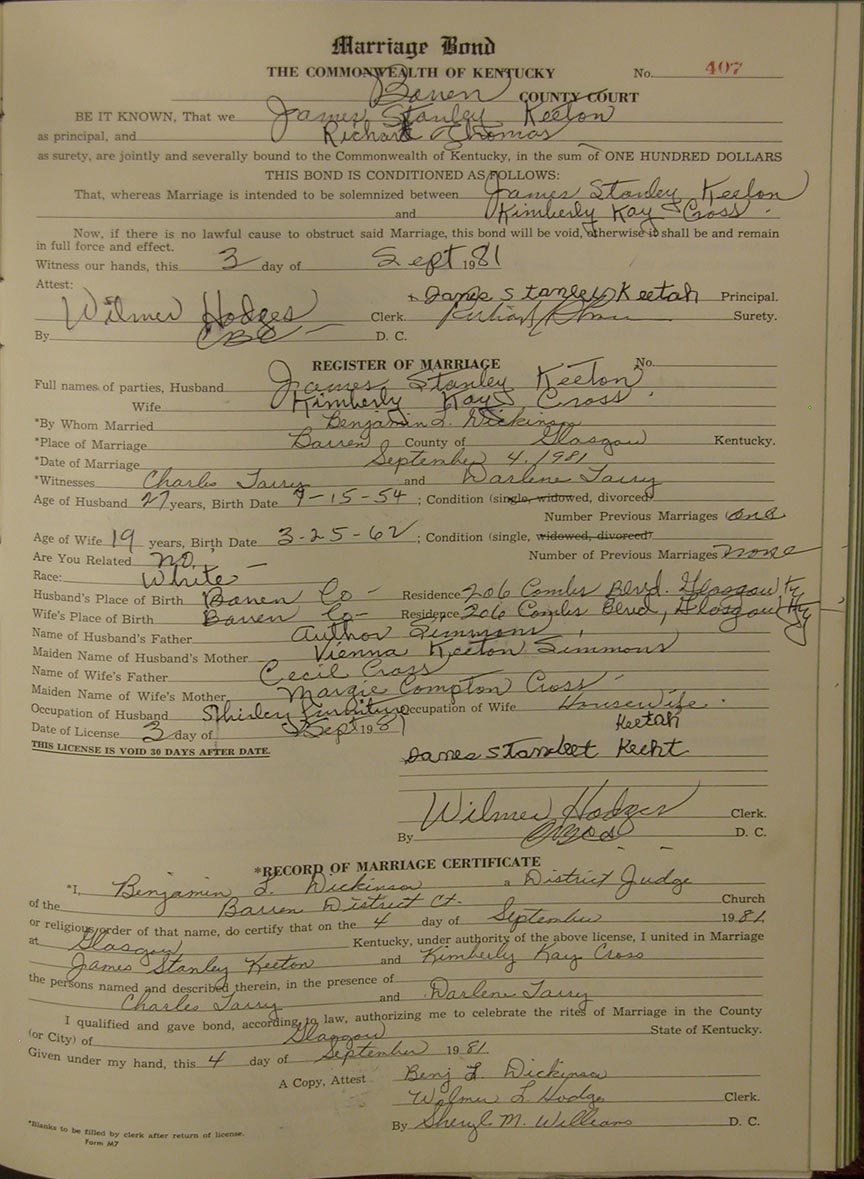 Marriage Bond
THE COMMONWEALTH OF KENTUCKY No. 407
Barren COUNTY COURT
BE IT KNOWN, That we James Stanley Keeton
as principal, and Richard Thomas
as surety, are jointly and severally bound to the Commonwealth of Kentucky, in the sum of ONE HUNDRED DOLLARS
THIS BOND IS CONDITIONED AS FOLLOWS:
That, whereas Marriage is intended to be solemnized between James Stanley Keeton
and Kimberly Kay Cross
Now, if there is no lawful cause to obstruct said Marriage, this bond will be void, otherwise it shall be and remain
in full force and effect.
Witness our hands, this 3 day of Sept 1981
Attest: James Stanley Keetah Principal.
Wilmer Hodges Clerk. Surety.
By D. C.
REGISTER OF MARRIAGE No.
Full names of parties, Husband James Stanley Keeton
Wife Kimberly Kay Cross
*By Whom Married Benjamin L. Dickinson
*Place of Marriage Barren County of Glasgow Kentucky.
*Date of Marriage September 4, 1981
*Witnesses Charles Tarry and Darlene Tarry
Age of Husband 27 years, Birth Date 9-15-54; Condition (single, widowed, divorced)
Number Previous Marriages one
Age of Wife 19 years, Birth Date 3-25-62; Condition (single, widowed, divorced)
Are You Related no Number of Previous Marriages none
Race: White
Husband's Place of Birth Barren Co Residence 206 Combs Blvd. Glasgow Ky
Wife's Place of Birth Barren Co Residence 206 Combs Blvd, Glasgow Ky
Name of Husband's Father Author Simmons
Maiden Name of Husband's Mother Vienna Keeton Simmons
Name of Wife's Father Cecil Cross
Maiden Name of Wife's Mother Margie Compton Cross
Occupation of Husband Shirley Furniture Occupation of Wife Housewife.
Date of License 3 day of Sept 1981 Keetah
THIS LICENSE IS VOID 30 DAYS AFTER DATE. James
Wilmer Hodges Clerk.
By D. C.
*RECORD OF MARRIAGE CERTIFICATE
*I, Benjamin L. Dickinson a District Judge
of the Barren District Ct. Church
or religious order of that name, do certify that on the 4 day of September 1981
at Glasgow Kentucky, under authority of the above license, I united in Marriage
James Stanley Keeton and Kimberly Kay Cross
the persons named and described therein, in the presence of
Charles Tarry and Darlene Tarry
I qualified and gave bond, according to law, authorizing me to celebrate the rites of Marriage in the County
(or City) of Glasgow State of Kentucky.
Given under my hand, this 4 day of September 1981
A Copy, Attest Benj L. Dickinson
Wilmer L. Hodges Clerk.
By Sheryl M. Williams D. C.
*Blanks to be filled by clerk after return of license.
Form M7